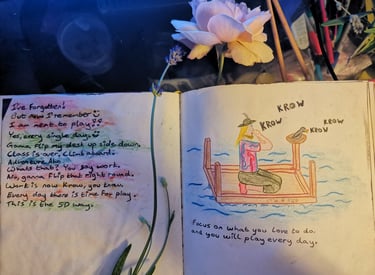 I've Forgotten!
But now I remember
I am meant to play!!
Yes, every single day.
Gonna Flip my desk up side down.
Class is over, Climb aboard.
Adventure Aho.
Whats that? You say work.
No, gonna flip that right round.
Work is now Krow, you know.
Every day there is time for play.
This is the 5D way.
KROW
KROW
KROW
KROW
Focus on what you love to do.
and you will play every day.